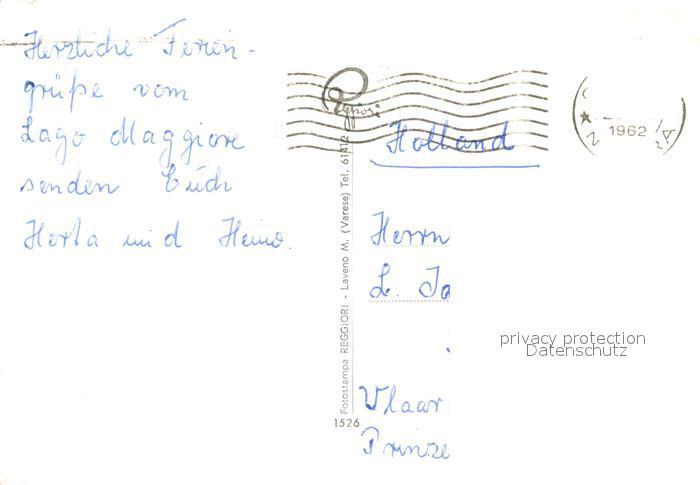 Herzliche Ferien-
grüße vom
Lago Maggiore
senden Euch
Herta und Heino.
Reggiori
Fotostampa REGGIORI - Laveno M. (Varese) Tel. 61412
1526
1962
Holland
Herrn
L. Ja
privacy protection
Datenschutz
Vlaar
Prinze